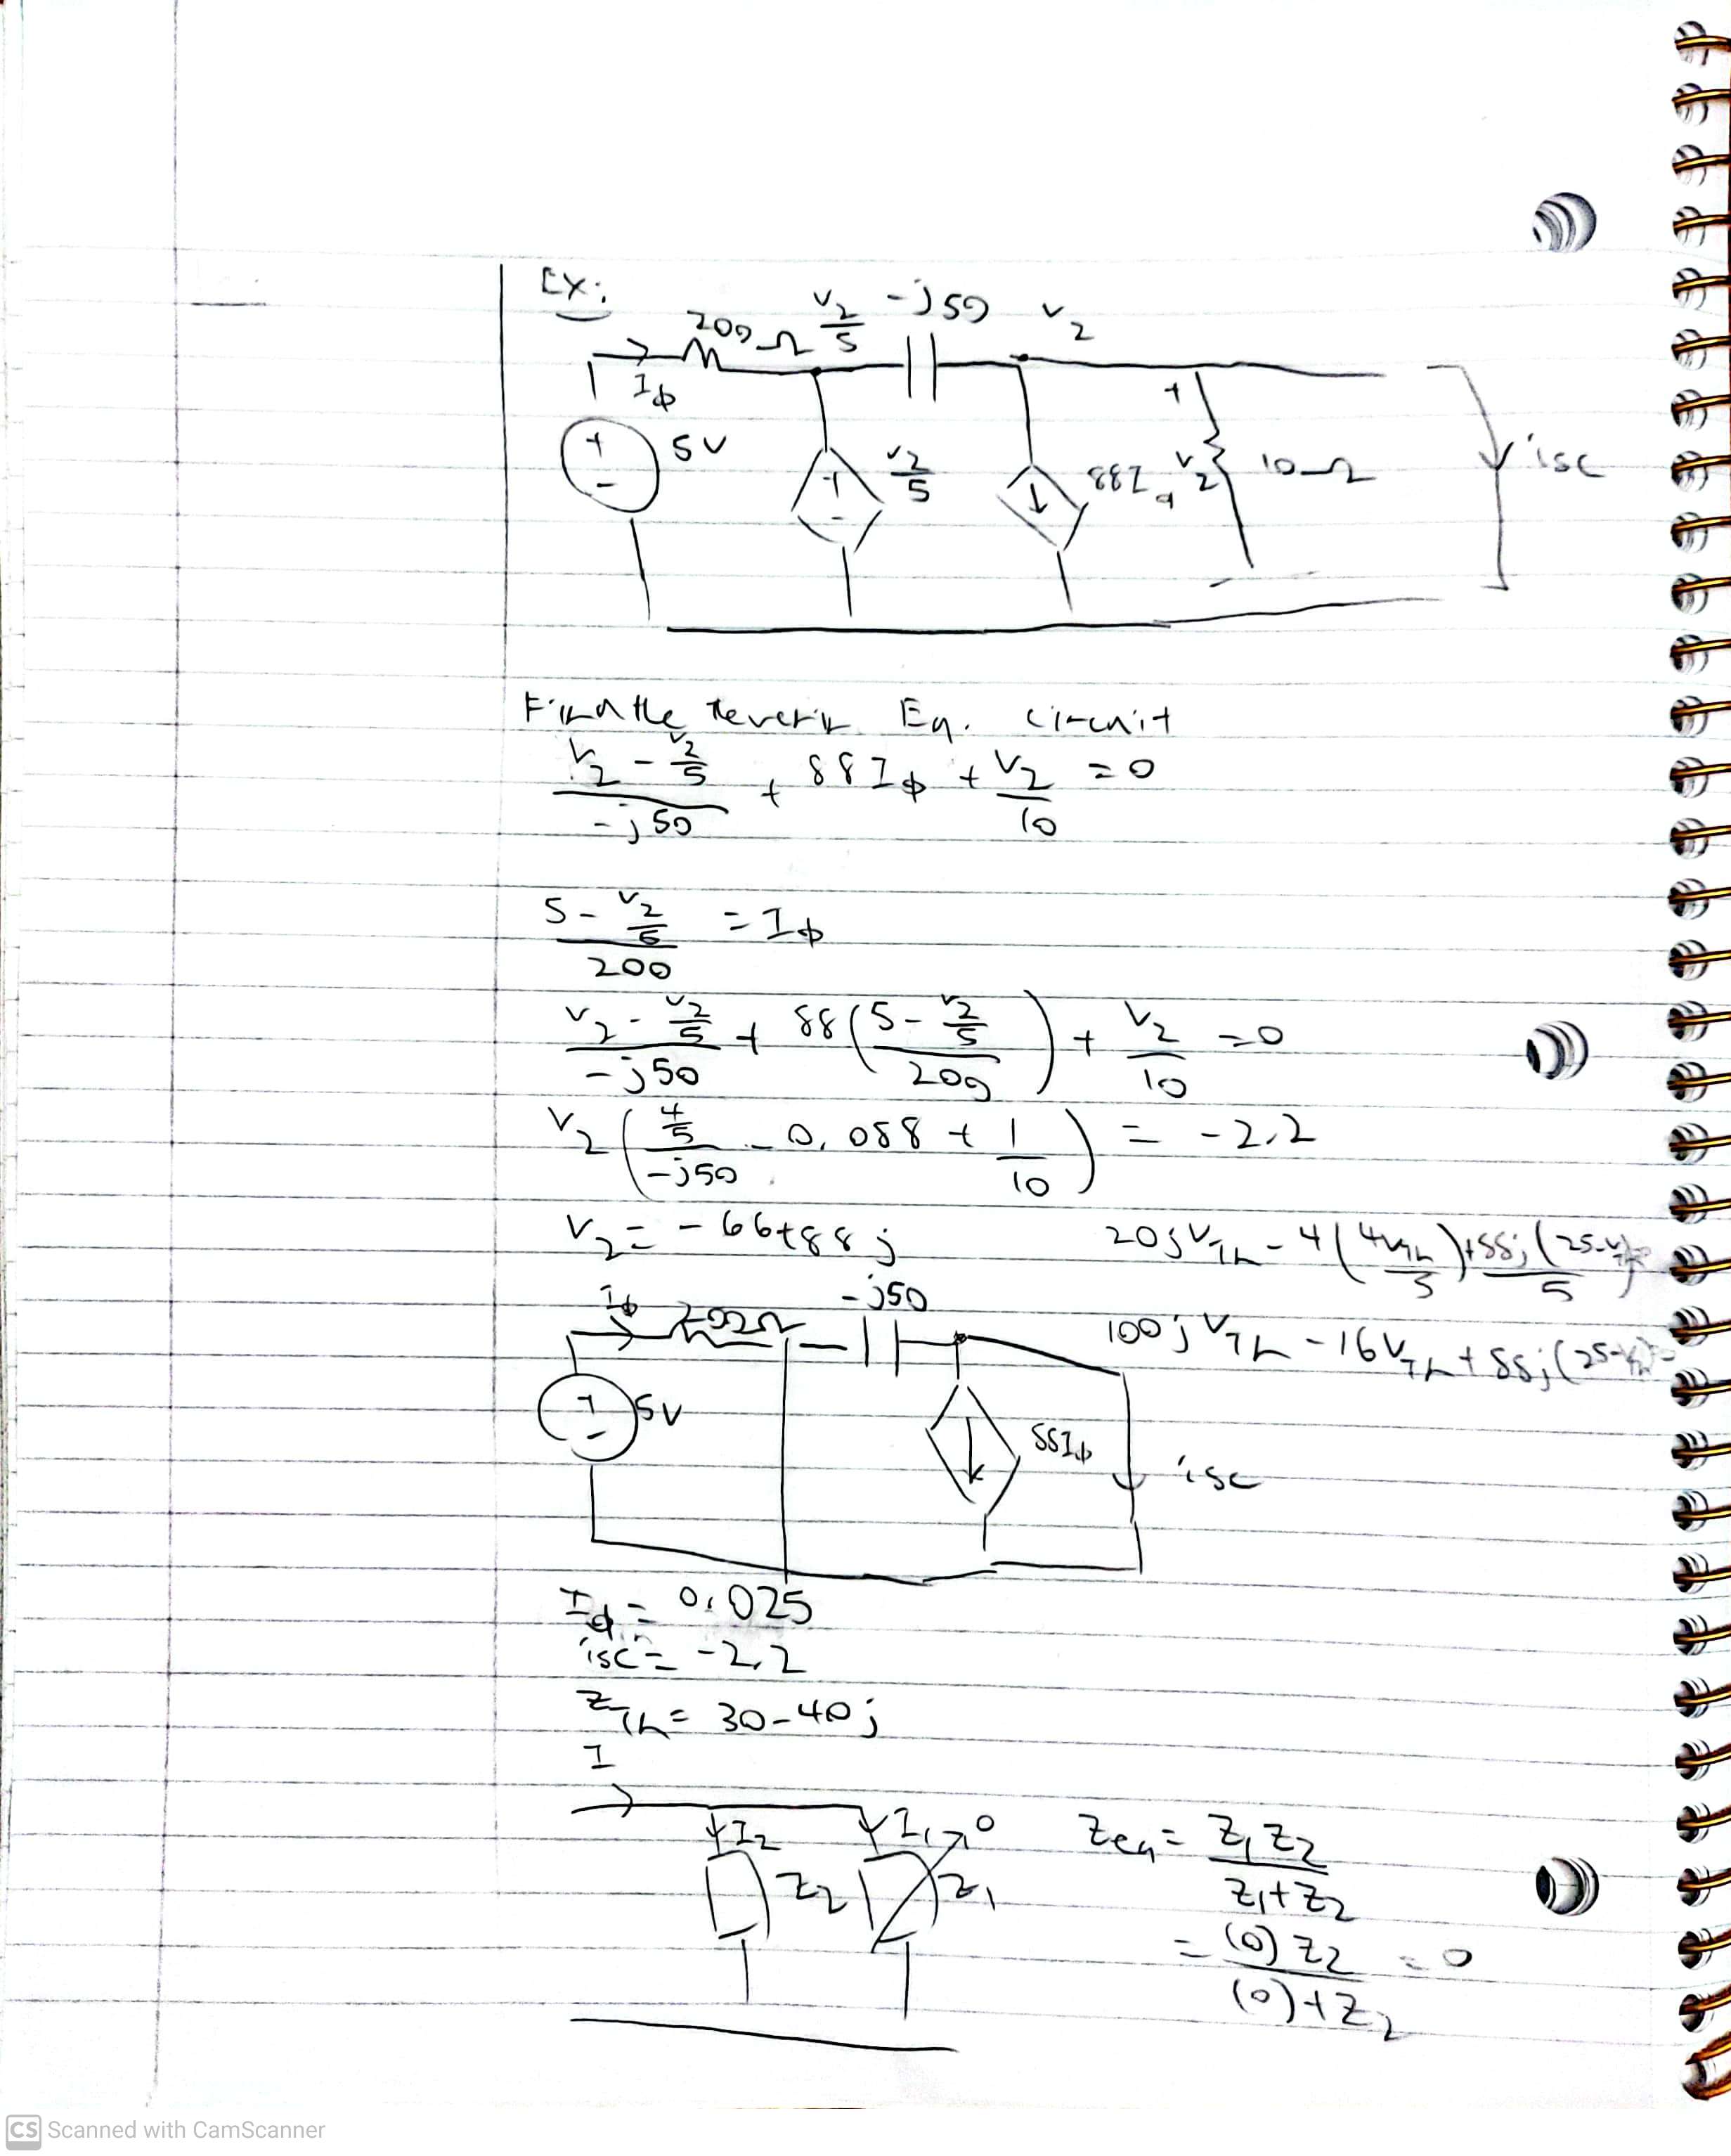 Ex:
200Ω V2/5 -j50 V2
IΦ
+ - 5V + - V2/5 88IΦ + V2 - 10Ω isc
Find the Thevenin Eq. circuit
(V2 - V2/5)/(-j50) + 88IΦ + V2/10 = 0
(5 - V2/5)/200 = IΦ
(V2 - V2/5)/(-j50) + 88((5 - V2/5)/200) + V2/10 = 0
V2((4/5)/(-j50) - 0.088 + 1/10) = -2.2
V2 = -66+88j
20jVTh - 4(4VTh/5) + 88j(25-V
IΦ 200Ω -j50
100jVTh - 16VTh + 88j(25-V
+ - 5V 88IΦ isc
IΦ = 0.025
isc = -2.2
ZTh = 30-40j
I
I2 I1 0 Zeq = Z1Z2/(Z1+Z2)
Z2 Z1
= (0)Z2/((0)+Z2) = 0
CS Scanned with CamScanner